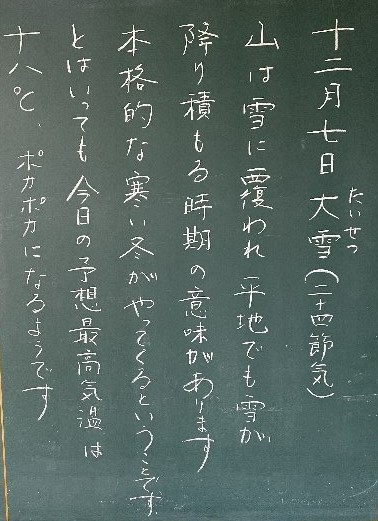 十二月七日 大雪(二十四節気)
たいせつ
山は雪に覆われ 平地でも雪が
降り積もる時期の意味があります
本格的な寒い冬がやってくるということです
とはいっても 今日の予想最高気温は
十八℃、ポカポカになるようです